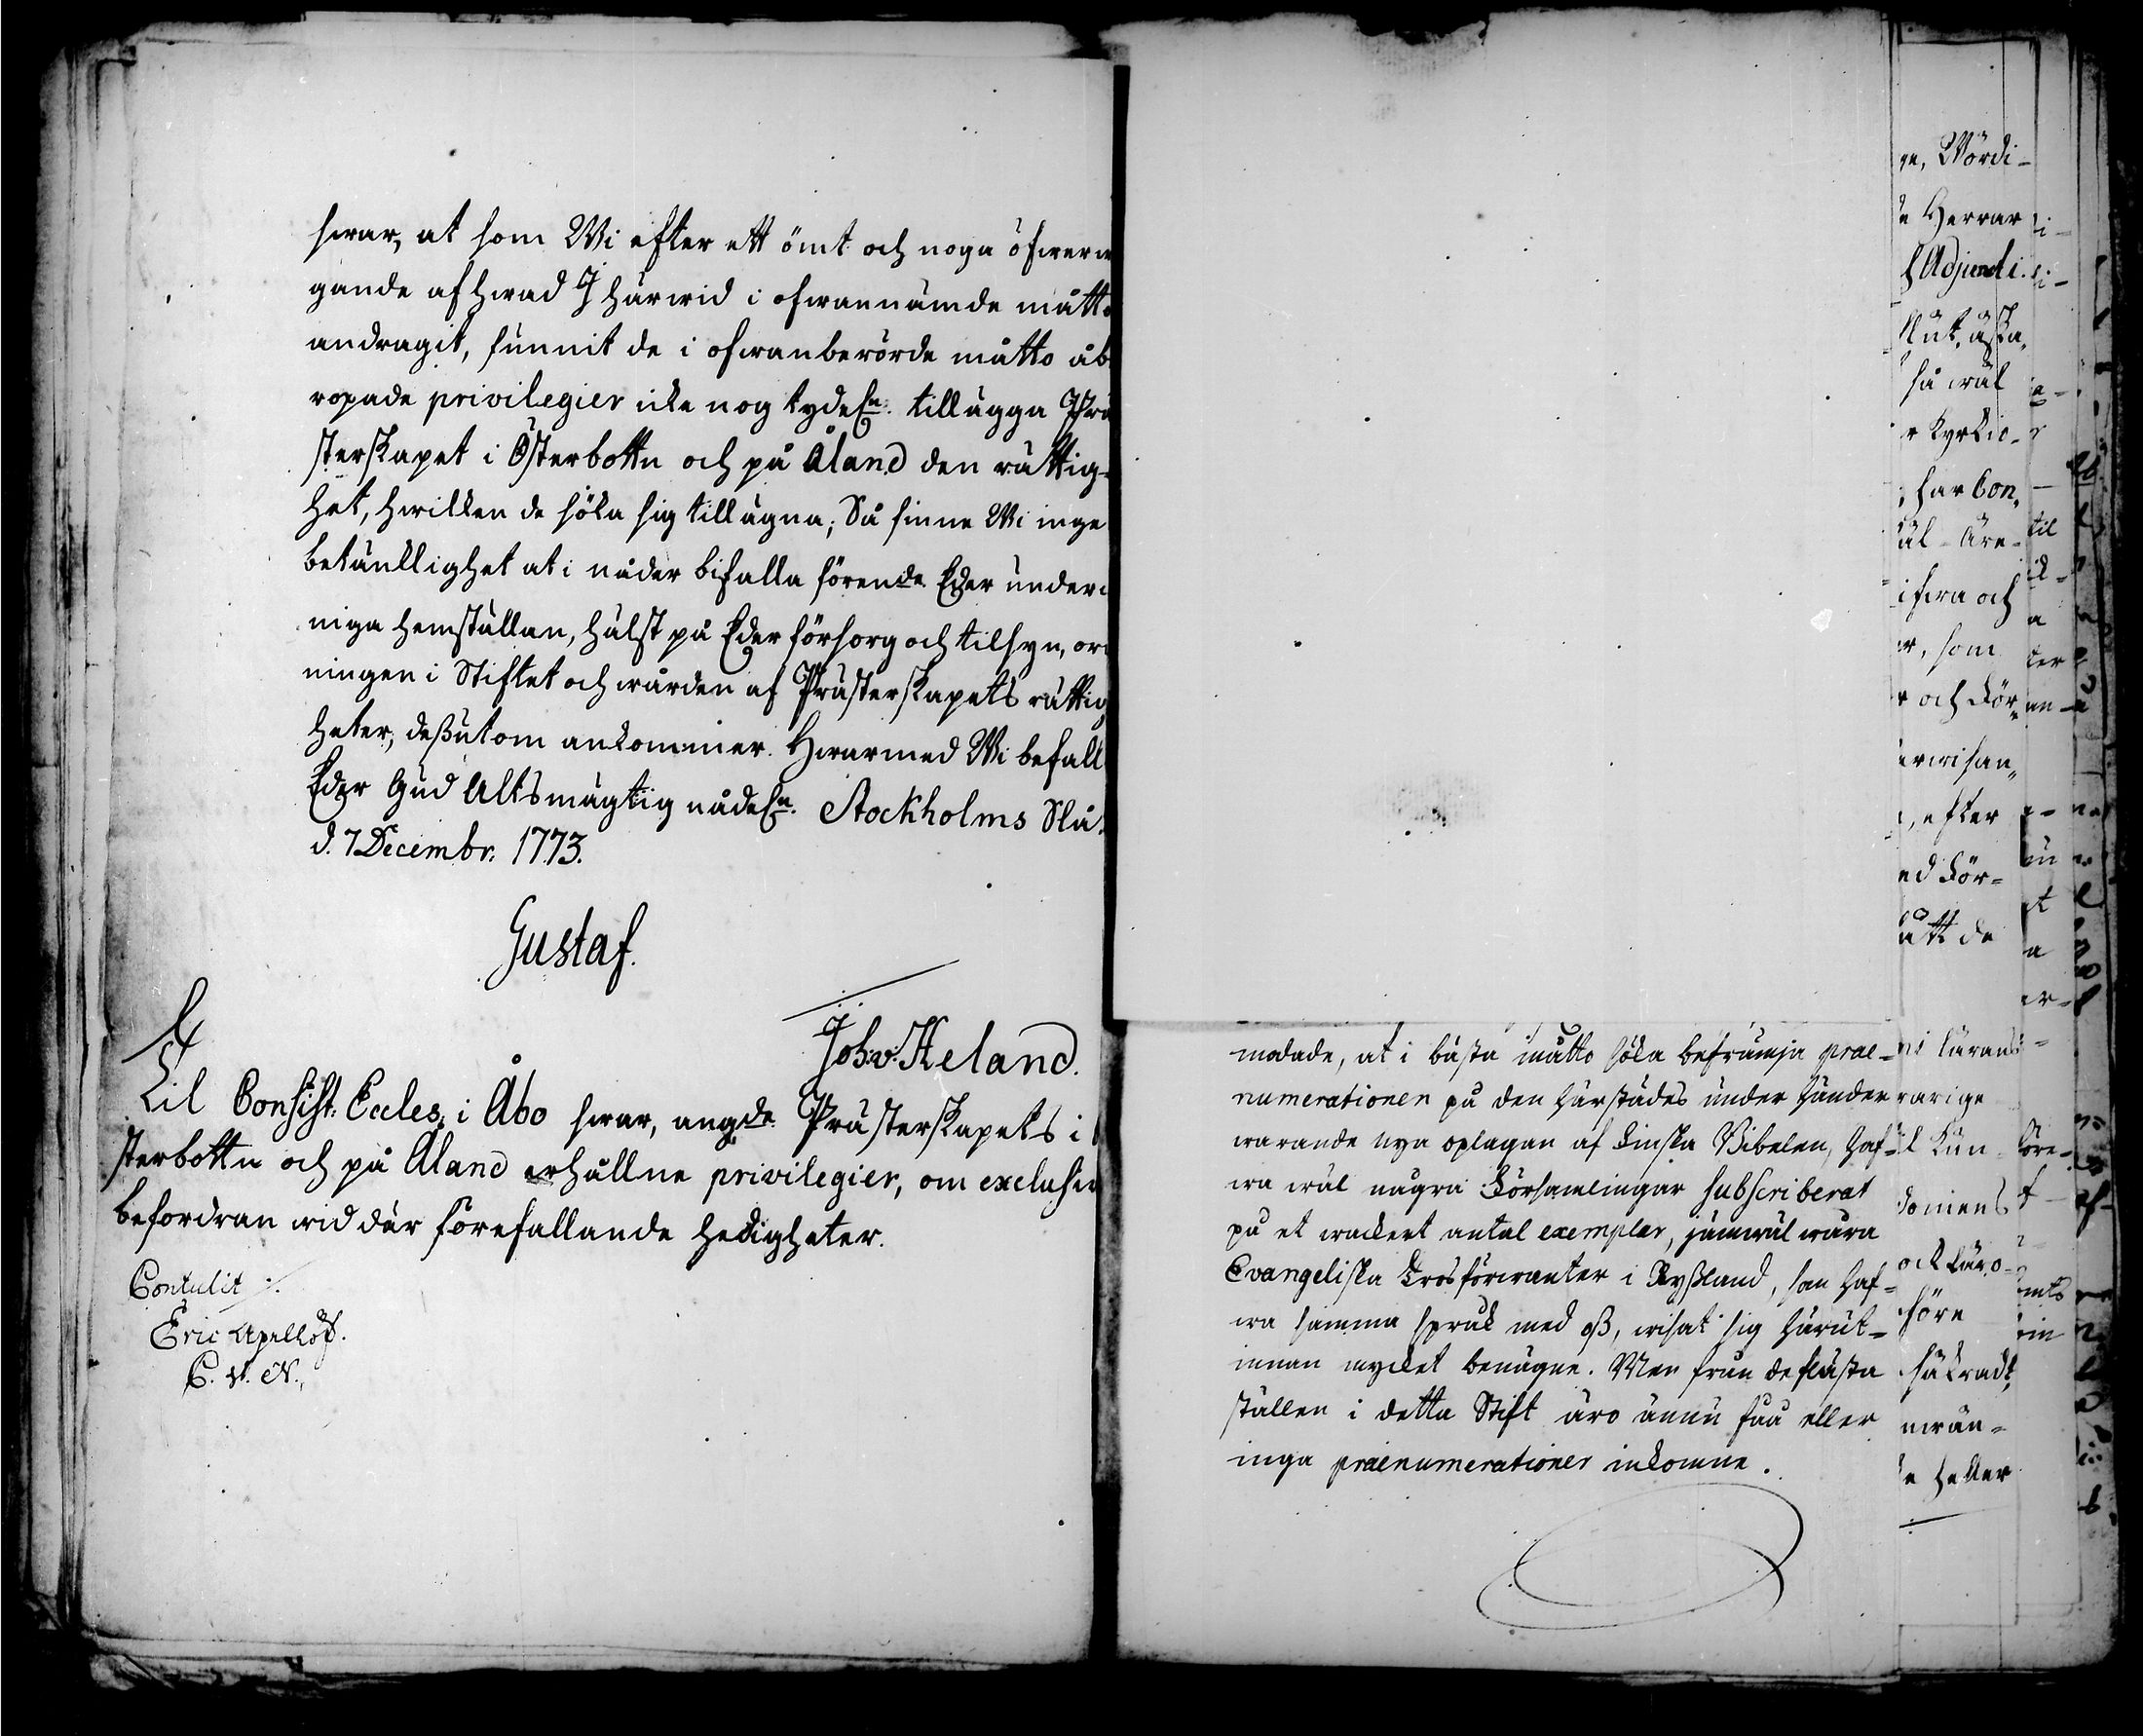 swar, at som Wi efter ett ömt och noga öfwerw
gande af hwad I härwid i ofwannämde måtto
andragit, funnit de i ofwanberörde måtto åb
ropade privilegier icke nog tydeln. tillägga Prä
sterskapet i Österbottn och på Åland den rättig-
het, hwilken de söka sig tillägna; Så finne Wi inge
betänklighet at i nåder bifalla förende. Eder under
niga hemställan, hälst på Eder försorg och tilsyn, or
ningen i Stiftet och wården af Prästerskapets rättig
heter, deßutom ankommer. Hwarmed Wi befall
Eder Gud Altsmägtig nådeln. Stockholms Slå
d. 7 Decembr. 1773.
Gustaf.
Joh: v: Heland.
Til Consist: Eccles. i Åbo swar, angde. Prästerskapets i
sterbottn och på Åland erhållne privilegier, om exclusiv
befordran wid där förefallande ledigheter.
Contulit
Eric Apellöf.
C. V. N.
modade, at i bästa måtto söka befrämja prae-
numerationen på den härstädes under händer
warande nya oplagan af Finska Bibelen, haf-
wa wäl några Församlingar subscriberat
på et wackert antal exemplar, jämwäl wåra
Evangeliska Trosförwanter i Ryßland, som haf-
wa samma språk med oß, wisat sig härut-
innan mycket benägne. Men från de flästa
ställen i detta Stift äro ännu fåå eller
inga praenumerationer inkomne.
ge, Wördi-
e Herrar
Adjuncti.
slut, äska,
så wäl
r Kyrkio-
har Con,
äl Äre-
ifwa och
er, som
r och För,
erwisan,
, efter
ed För-
ått de
rarige
l Kun
domens
ock läro-
före
säkradt,
nwän-
e heller